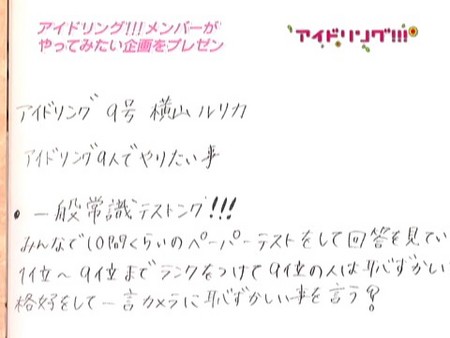 アイドリング!!!メンバーが
やってみたい企画をプレゼン
アイドリング!!!
アイドリング9号 横山ルリカ
アイドリング9人でやりたい事
• 一般常識テストング!!!
みんなで10問くらいのペーパーテストをして回答を見てい
1位〜9位までランクをつけて9位の人は恥ずかしい
格好をして一言カメラに恥ずかしい事を言う?